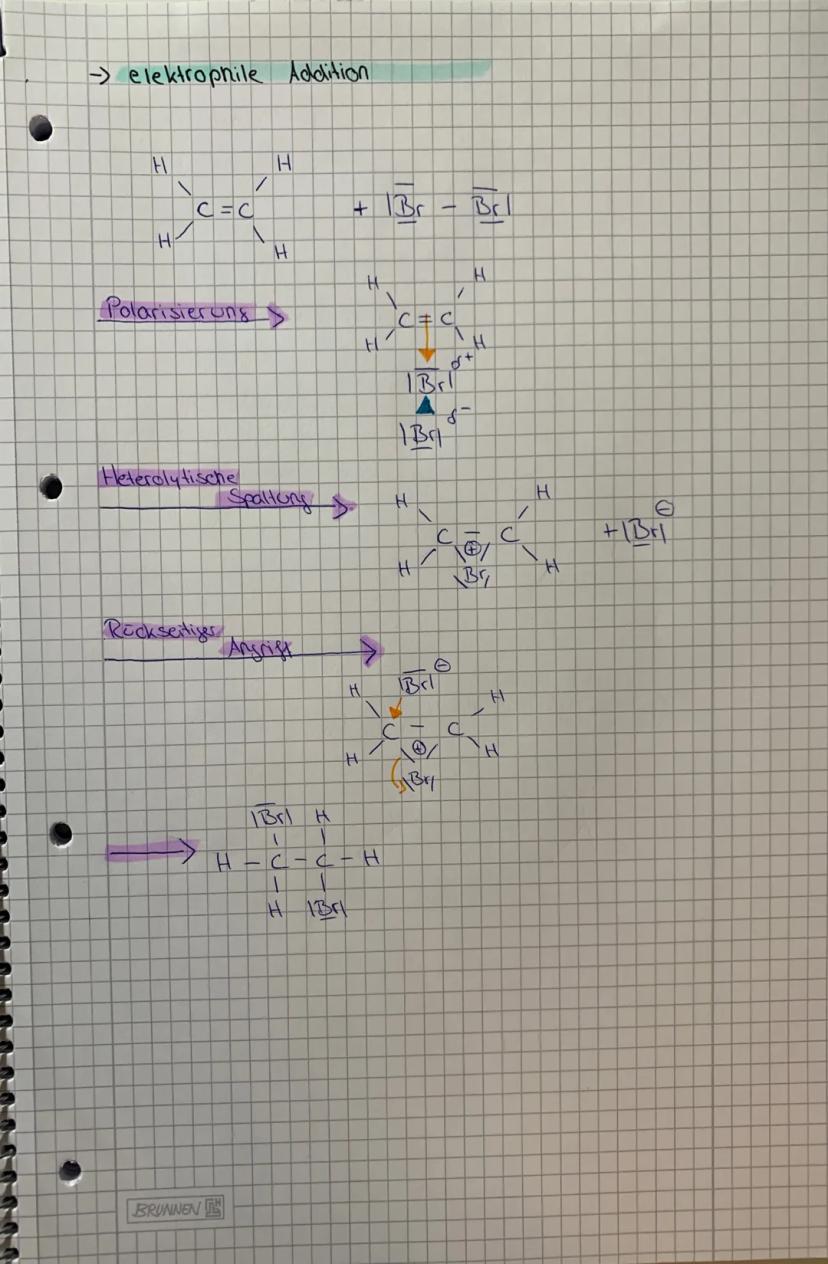 → elektrophile Addition
H H
C = C + |Br - Br|
H H
Polarisierung
H H
C = C
H H
|Br| δ+
|Br| δ-
Heterolytische
Spaltung
H H
C - C + |Br| ⊖
⊕
H H
Br
Rückseitiger
Angriff
|Br| ⊖
H H
C - C
⊕
H H
|Br|
|Br| H
H - C - C - H
H |Br|
BRUNNEN